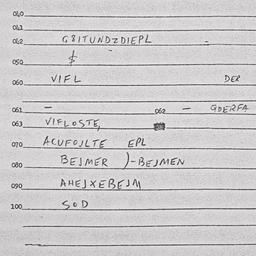 040
041
042 G8ITUNDZDIEPL -
$
050
060 VIFL DER
061 - 062 - GDERFA
063 VIFLOSTE,
070 ACUFOJLTE EPL
080 BEJMER )-BEJMEN
090 AHEJXEBEJM
100 SOD